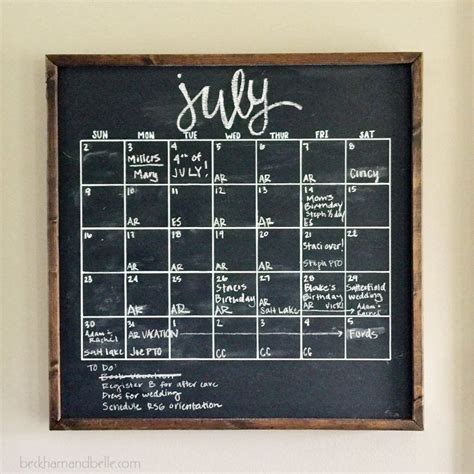 july
SUN MON TUE WED THUR FRI SAT
2 3 4 5 6 7 8
Millers 4th of
Mary JULY!
AR AR AR Cincy
9 10 11 12 13 14 15
Mom's
Birthday
Steph ½ day
AR ES AR AR ES
16 17 18 19 20 21 22
Staci over!
AR AR AR AR Steph PTO
23 24 25 26 27 28 29
Staci's Blake's Satterfield
Birthday Birthday wedding
AR AR AR AR AR Vicki Adam +
Salt Lake Rachel
30 31 1 2 3 4 5
Adam + AR VACATION Fords
Rachel
Salt Lake Joe PTO CC CC
TO DO:
Book vacation
Register B for after care
Dress for wedding
Schedule RSG orientation
beckhamandbelle.com